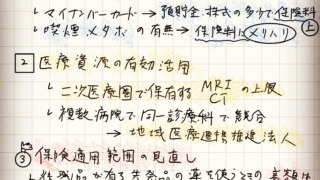 └ マイナンバーカード → 預貯金・株式の多少で保険料
└ 喫煙、メタボの有無 → 保険料にメリハリ 上
2 医療資源の有効活用
└ 二次医療圏で保有する MRI CT の上限
└ 複数病院で同一診療科で競合
→ 地域医療連携推進法人
③ 保険適用範囲の見直し
└ 後発品が有る先発品の薬を使うときの